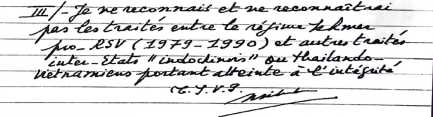 III/- Je ne reconnais et ne reconnaîtrai
pas les traités entre le régime Khmer
pro-RSV (1979-1990) et autres traités
inter-Etats "indochinois" ou thailando-
vietnamiens portant atteinte à l'intégrité